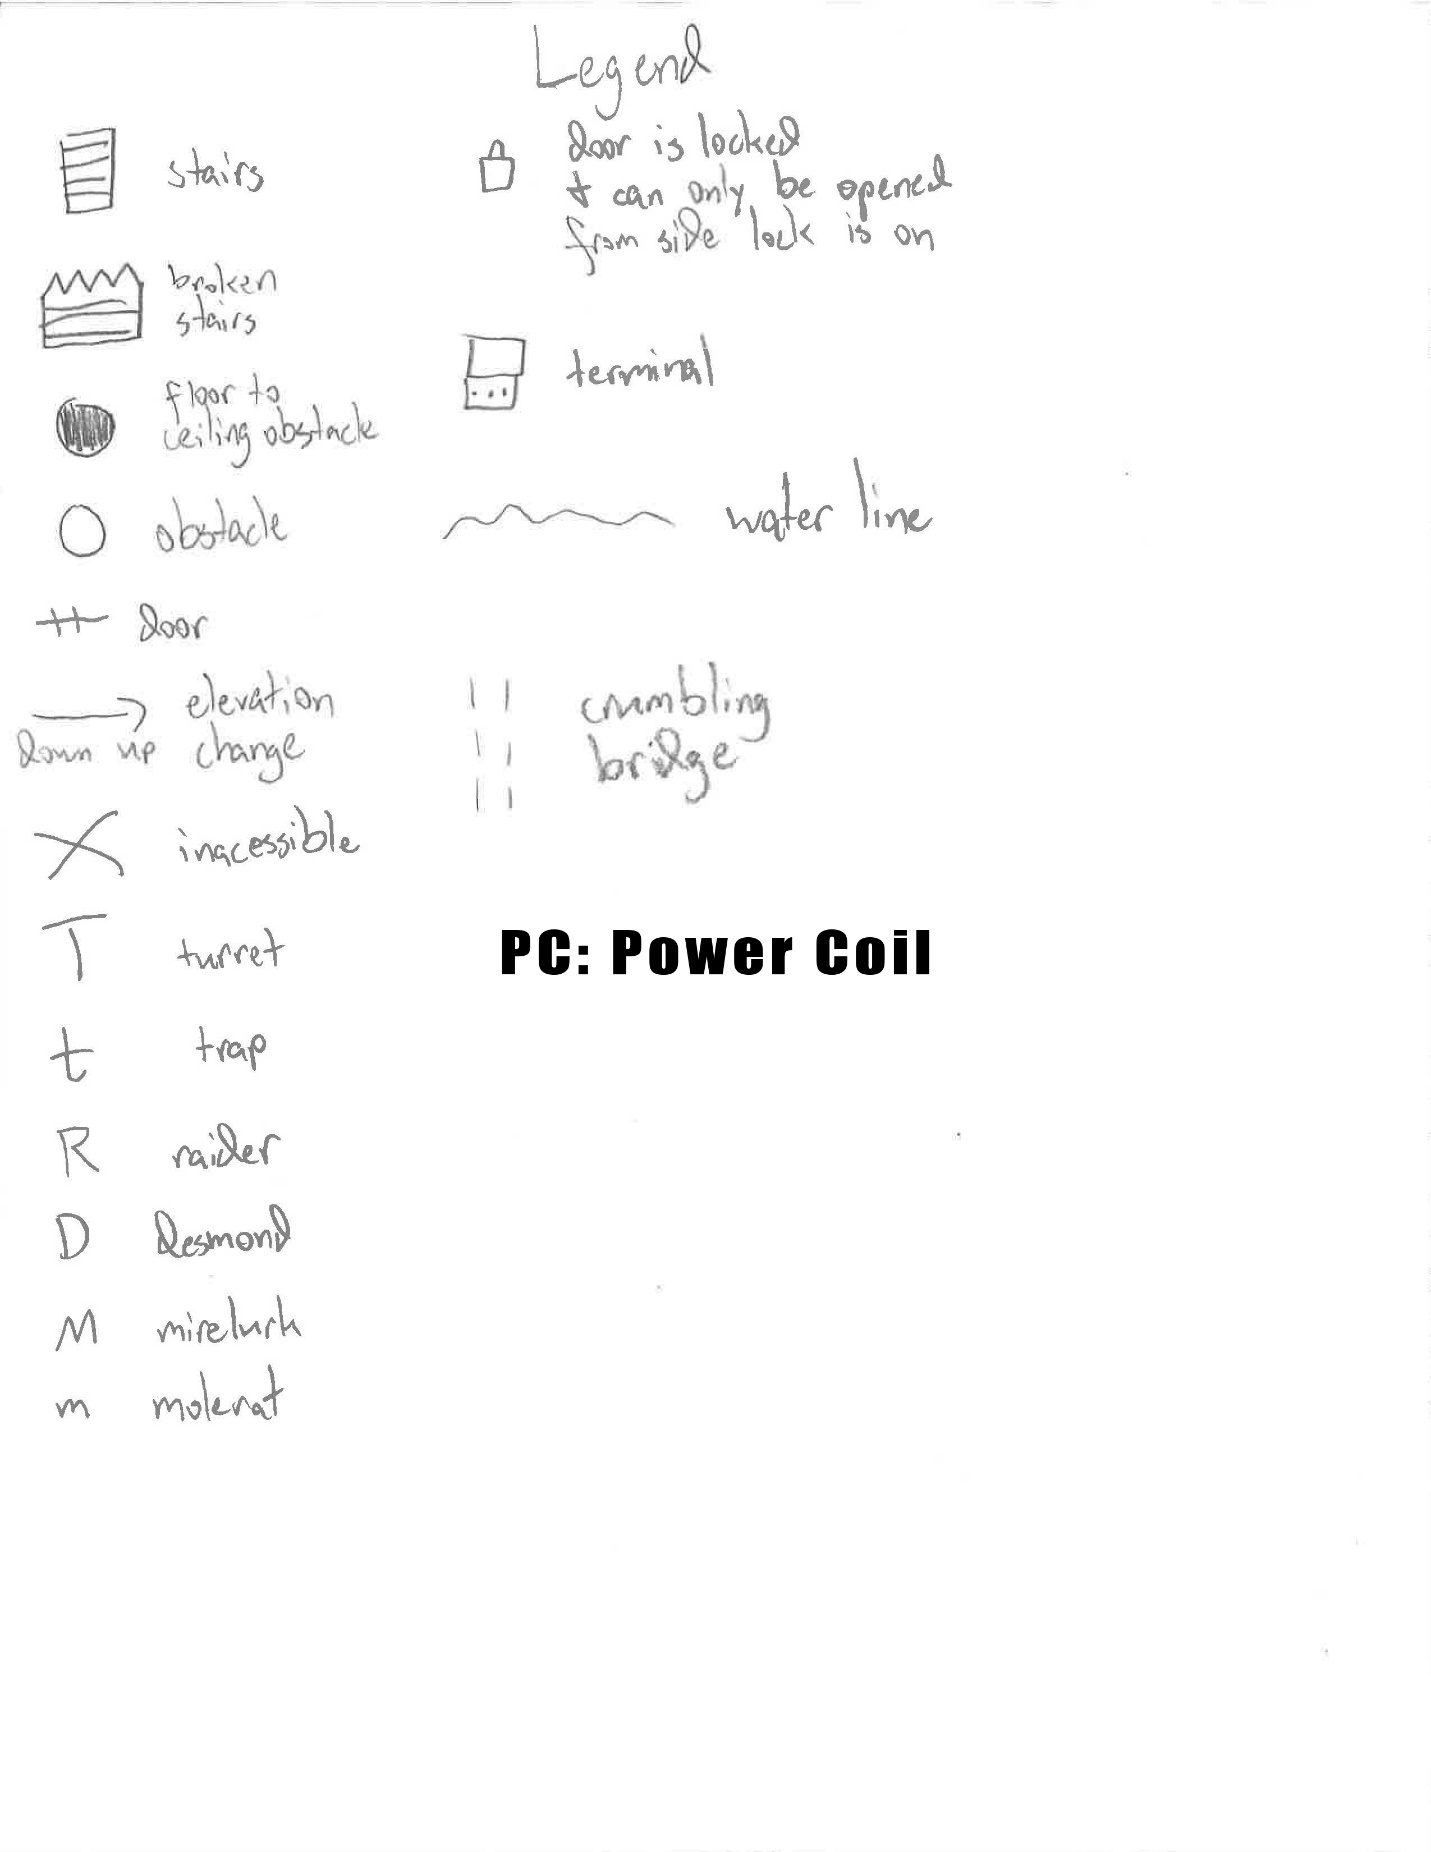 Legend
stairs
broken
stairs
floor to
ceiling obstacle
obstacle
door
elevation
down up change
inacessible
T turret
t trap
R raider
D desmond
M mirelurk
m molerat
door is locked
+ can only be opened
from side lock is on
terminal
water line
crumbling
bridge
PC: Power Coil